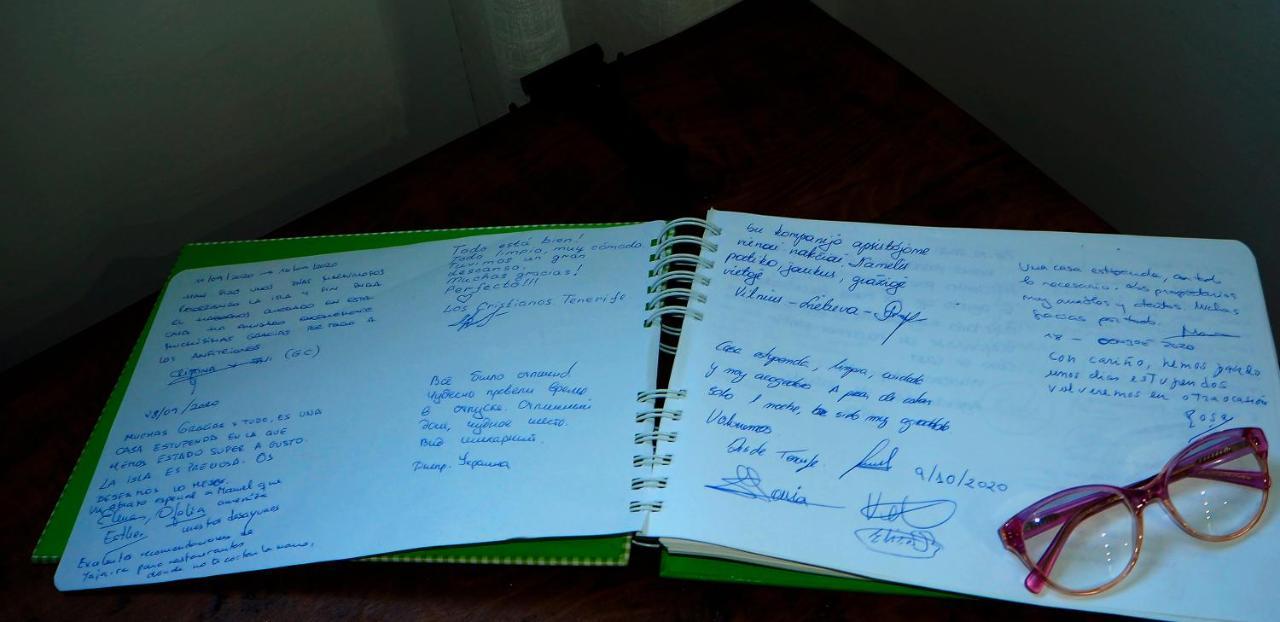 11/09/2020 → 18/09/2020
HAN SIDO UNOS DÍAS MARAVILLOSOS
RECORRIENDO LA ISLA Y SIN DUDA
EL HABERNOS ALOJADO EN ESTA
CASA HA AYUDADO
MUCHÍSIMAS GRACIAS POR TODO A
LOS ANFITRIONES
(GC)
28/09/2020
MUCHAS GRACIAS X TODO, ES UNA
CASA ESTUPENDA EN LA QUE
HEMOS ESTADO SUPER A GUSTO.
LA ISLA ES PRECIOSA. OS
DESEAMOS LO MEJOR.
Un abrazo especial a Manuel que
Elena, Ofelia
Esther nuestros desayunos
Excelentes recomendaciones de
Yajaira para restaurantes
donde no te cortan la mano,
Todo está bien!
Todo limpio, muy cómodo
Tuvimos un gran
descanso.
Muchas gracias!
Perfecto!!!
Los Cristianos Tenerife
Всё было отлично!
Чудесно провели время
в отпуске. Отличный
дом, чудное место.
Вид шикарный.
Днепр. Украина
Su kompanija apsistojome
vienai nakčiai. Namelis
patiko, jaukus, gražioje
vietoje
Vilnius - Lietuva -
Casa estupenda, limpia, cuidada
y muy acogedora. A pesar de estar
solo 1 noche, ha sido muy agradable
Volveremos
Desde Tenerife
9/10/2020
Sonia
Una casa estupenda, con todo
lo necesario. Los propietarios
muy amables y atentos. Muchas
gracias por todo.
18 - OCTUBRE 2020
Con cariño, hemos pasado
unos días estupendos
volveremos en otra ocasión
Rosa